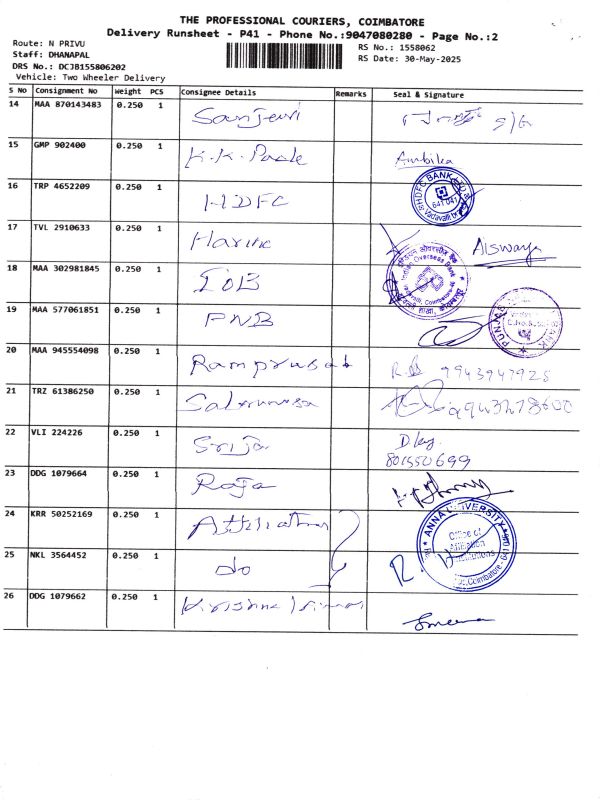 THE PROFESSIONAL COURIERS, COIMBATORE
Delivery Runsheet - P41 - Phone No.:9047080280 - Page No.:2
Route: N PRIVU
Staff: DHANAPAL
DRS No.: DCJB155806202
Vehicle: Two Wheeler Delivery
RS No.: 1558062
RS Date: 30-May-2025
S No Consignment No Weight PCS Consignee Details Remarks Seal & Signature
14 MAA 870143483 0.250 1 Sanjeevi
15 GMP 902400 0.250 1 K.K. Ambika
16 TRP 4652209 0.250 1 HDFC HDFC BANK 641 041
17 TVL 2910633 0.250 1 Harini
18 MAA 302981845 0.250 1 IOB Indian Overseas Bank
19 MAA 577061851 0.250 1 PNB
20 MAA 945554098 0.250 1 Ramprasat 9943947925
21 TRZ 61386250 0.250 1
22 VLI 224226 0.250 1 Srija
801550699
23 DDG 1079664 0.250 1 Raja
24 KRR 50252169 0.250 1 ANNA UNIVERSITY Office of
25 NKL 3564452 0.250 1 do Coimbatore
26 DDG 1079662 0.250 1